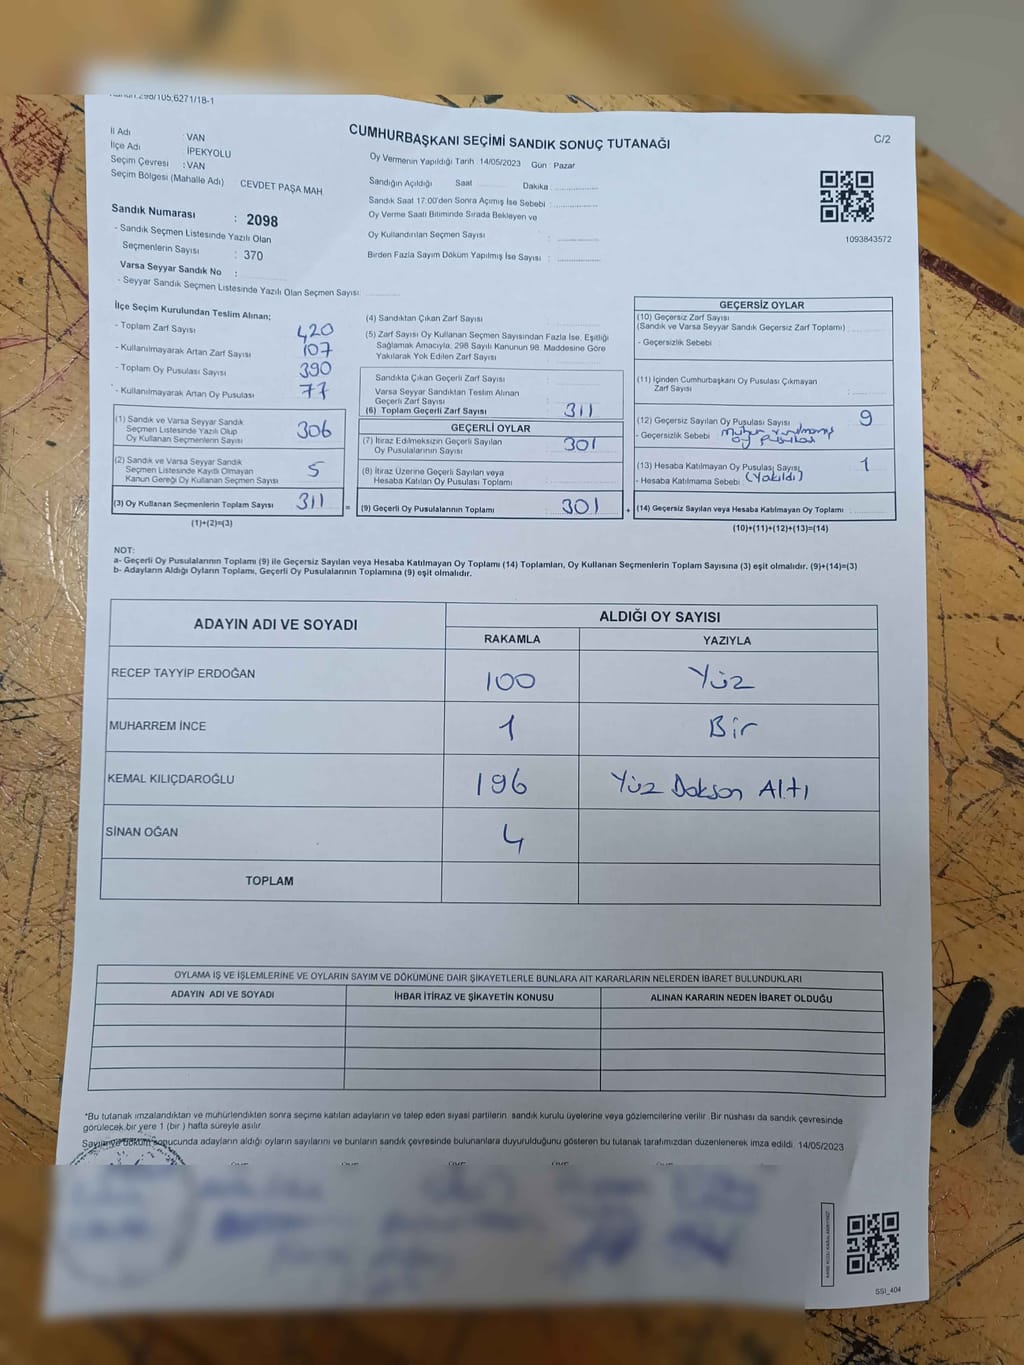 298/105,6271/18-1
CUMHURBAŞKANI SEÇİMİ SANDIK SONUÇ TUTANAĞI
C/2
İl Adı : VAN
İlçe Adı İPEKYOLU
Seçim Çevresi : VAN
Seçim Bölgesi (Mahalle Adı) CEVDET PAŞA MAH.
Oy Vermenin Yapıldığı Tarih :14/05/2023 Gün : Pazar
Sandığın Açıldığı Saat Dakika :
Sandık Saat 17:00'den Sonra Açımış İse Sebebi :
Oy Verme Saati Bitiminde Sırada Bekleyen ve
Oy Kullandırılan Seçmen Sayısı :
Birden Fazla Sayım Döküm Yapılmış İse Sayısı :
1093843572
Sandık Numarası : 2098
- Sandık Seçmen Listesinde Yazılı Olan
Seçmenlerin Sayısı : 370
Varsa Seyyar Sandık No :
- Seyyar Sandık Seçmen Listesinde Yazılı Olan Seçmen Sayısı:
İlçe Seçim Kurulundan Teslim Alınan;
- Toplam Zarf Sayısı 420
- Kullanılmayarak Artan Zarf Sayısı 107
- Toplam Oy Pusulası Sayısı 390
- Kullanılmayarak Artan Oy Pusulası 77
(1) Sandık ve Varsa Seyyar Sandık
Seçmen Listesinde Yazılı Olup
Oy Kullanan Seçmenlerin Sayısı 306
(2) Sandık ve Varsa Seyyar Sandık
Seçmen Listesinde Kayıtlı Olmayan
Kanun Gereği Oy Kullanan Seçmen Sayısı 5
(3) Oy Kullanan Seçmenlerin Toplam Sayısı 311 =
(1)+(2)=(3)
(4) Sandıktan Çıkan Zarf Sayısı
(5) Zarf Sayısı Oy Kullanan Seçmen Sayısından Fazla İse, Eşitliği
Sağlamak Amacıyla, 298 Sayılı Kanunun 98. Maddesine Göre
Yakılarak Yok Edilen Zarf Sayısı
Sandıkta Çıkan Geçerli Zarf Sayısı
Varsa Seyyar Sandıktan Teslim Alınan
Geçerli Zarf Sayısı
(6) Toplam Geçerli Zarf Sayısı 311
GEÇERLİ OYLAR
(7) İtiraz Edilmeksizin Geçerli Sayılan
Oy Pusulalarının Sayısı 301
(8) İtiraz Üzerine Geçerli Sayılan veya
Hesaba Katılan Oy Pusulası Toplamı
(9) Geçerli Oy Pusulalarının Toplamı 301 +
GEÇERSİZ OYLAR
(10) Geçersiz Zarf Sayısı
(Sandık ve Varsa Seyyar Sandık Geçersiz Zarf Toplamı)
- Geçersizlik Sebebi
(11) İçinden Cumhurbaşkanı Oy Pusulası Çıkmayan
Zarf Sayısı
(12) Geçersiz Sayılan Oy Pusulası Sayısı 9
- Geçersizlik Sebebi
oy pusulası
(13) Hesaba Katılmayan Oy Pusulası Sayısı 1
- Hesaba Katılmama Sebebi (Yakıldı)
(14) Geçersiz Sayılan veya Hesaba Katılmayan Oy Toplamı
(10)+(11)+(12)+(13)=(14)
NOT:
a- Geçerli Oy Pusulalarının Toplamı (9) ile Geçersiz Sayılan veya Hesaba Katılmayan Oy Toplamı (14) Toplamları, Oy Kullanan Seçmenlerin Toplam Sayısına (3) eşit olmalıdır. (9)+(14)=(3)
b- Adayların Aldığı Oyların Toplamı, Geçerli Oy Pusulalarının Toplamına (9) eşit olmalıdır.
ADAYIN ADI VE SOYADI ALDIĞI OY SAYISI
RAKAMLA YAZIYLA
RECEP TAYYİP ERDOĞAN 100 Yüz
MUHARREM İNCE 1 Bir
KEMAL KILIÇDAROĞLU 196 Yüz Doksan Altı
SİNAN OĞAN 4
TOPLAM
OYLAMA İŞ VE İŞLEMLERİNE VE OYLARIN SAYIM VE DÖKÜMÜNE DAİR ŞİKAYETLERLE BUNLARA AİT KARARLARIN NELERDEN İBARET BULUNDUKLARI
ADAYIN ADI VE SOYADI İHBAR İTİRAZ VE ŞİKAYETİN KONUSU ALINAN KARARIN NEDEN İBARET OLDUĞU
*Bu tutanak imzalandıktan ve mühürlendikten sonra seçime katılan adayların ve talep eden siyasi partilerin sandık kurulu üyelerine veya gözlemcilerine verilir. Bir nüshası da sandık çevresinde
görülecek bir yere 1 (bir ) hafta süreyle asılır.
Sayım ve döküm sonucunda adayların aldığı oyların sayılarını ve bunların sandık çevresinde bulunanlara duyurulduğunu gösteren bu tutanak tarafımızdan düzenlenerek imza edildi. 14/05/2023
SSI_404